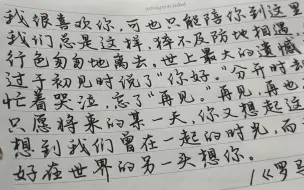 我很喜欢你,可也只能陪你到这里
我们总是这样,猝不及防地相遇
行色匆匆地离去,世上最大的遗憾
过于初见时说了“你好”。分开时却
忙着哭泣,忘了“再见”。再见,再也
只愿将来的某一天,你又想起这
想到我们曾在一起的时光,而
好在世界的另一头想你。
/《罗